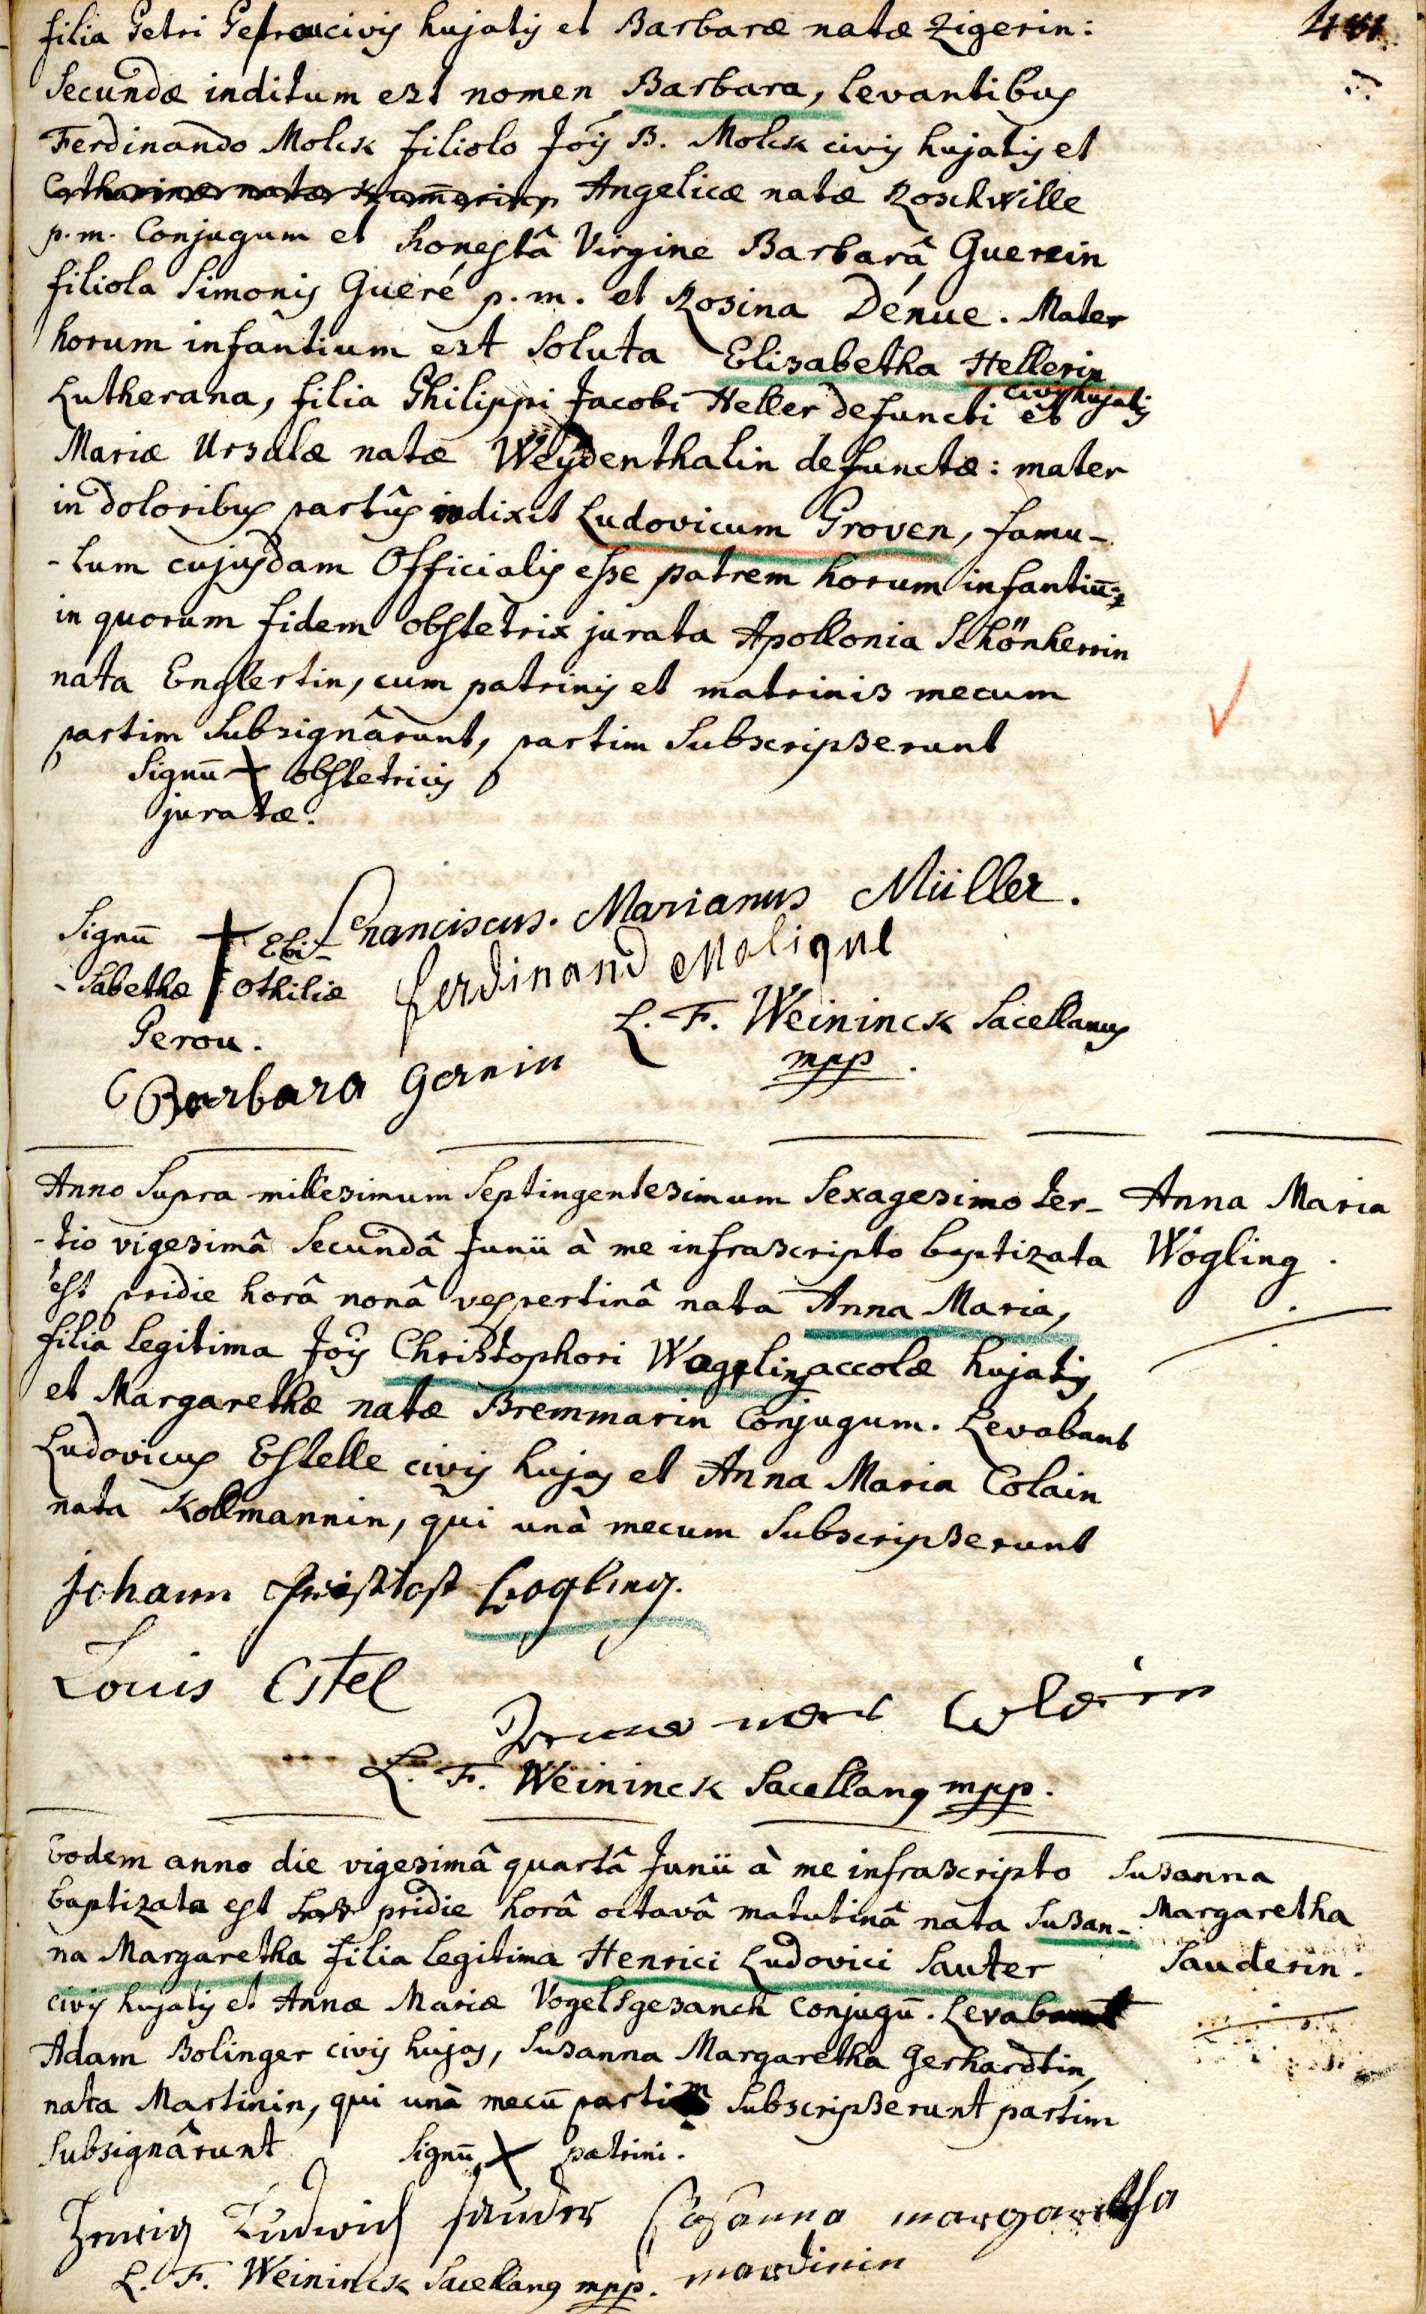 401.
filia Petri Perou civis hujatis et Barbaræ natæ Zigerin:
Secundæ inditum est nomen Barbara, levantibus
Ferdinando Molck filiolo Jois B. Molck civis hujatis et
Angelicæ natæ Roschwille
p.m. Conjugum et honestâ Virgine Barbarâ Guerein
filiola Simonis Gueré p.m. et Rosina Dénue. Mater
horum infantium est soluta Elisabetha Hellerin
civis hujatis
Lutherana, filia Philippi Jacobi Heller defuncti et
Mariæ Ursulæ natæ Weydenthalin defunctæ: mater
in doloribus partûs indixit Ludovicum Proven, famu-
-lum cujusdam Officialis esse patrem horum infantiū:
in quorum fidem obstetrix jurata Apollonia Schönherrin
nata Englertin, cum patrinis et matrinis mecum
partim subsignârunt, partim subscripserunt
Signū X obstetricis
juratæ.
Franciscus. Marianus Müller.
Signū + Eli-
-sabethæ Othiliæ
Perou.
Ferdinand Molique
L. F. Weininck Sacellanus
mpp.
Barbara Gernin
Anno supra millesimum septingentesimum sexagesimo ter-
-tio vigesimâ secundâ Junii à me infrascripto baptizata
est pridie horâ nonâ vespertinâ nata Anna Maria,
filia legitima Jois Christophori Wogling accolæ hujatis
et Margarethæ natæ Bremmarin Conjugum. Levabant
Ludovicus Estelle civis hujas et Anna Maria Colain
nata Kollmannin, qui unà mecum subscripserunt
Anna Maria
Wögling.
Johann Christost Wogling.
Louis Estel
L. F. Weininck Sacellanus mpp.
Eodem anno die vigesimâ quartâ Junii à me infrascripto
baptizata est pridie horâ octavâ matutinâ nata Susan-
na Margaretha filia legitima Henrici Ludovici Sauter
civis hujatis et Annæ Mariæ Vogelsgesanch conjugū. Levabant
Adam Bolinger civis hujas, Susanna Margaretha Gerhardtin,
nata Martinin, qui unà mecū partim subscripserunt partim
subsignârunt Signū X patrini.
Susanna
Margaretha
Sauderin.
Henrig Ludwich Sauder Susanna margaretha
mardinin
L. F. Weininck Sacellanus mpp.